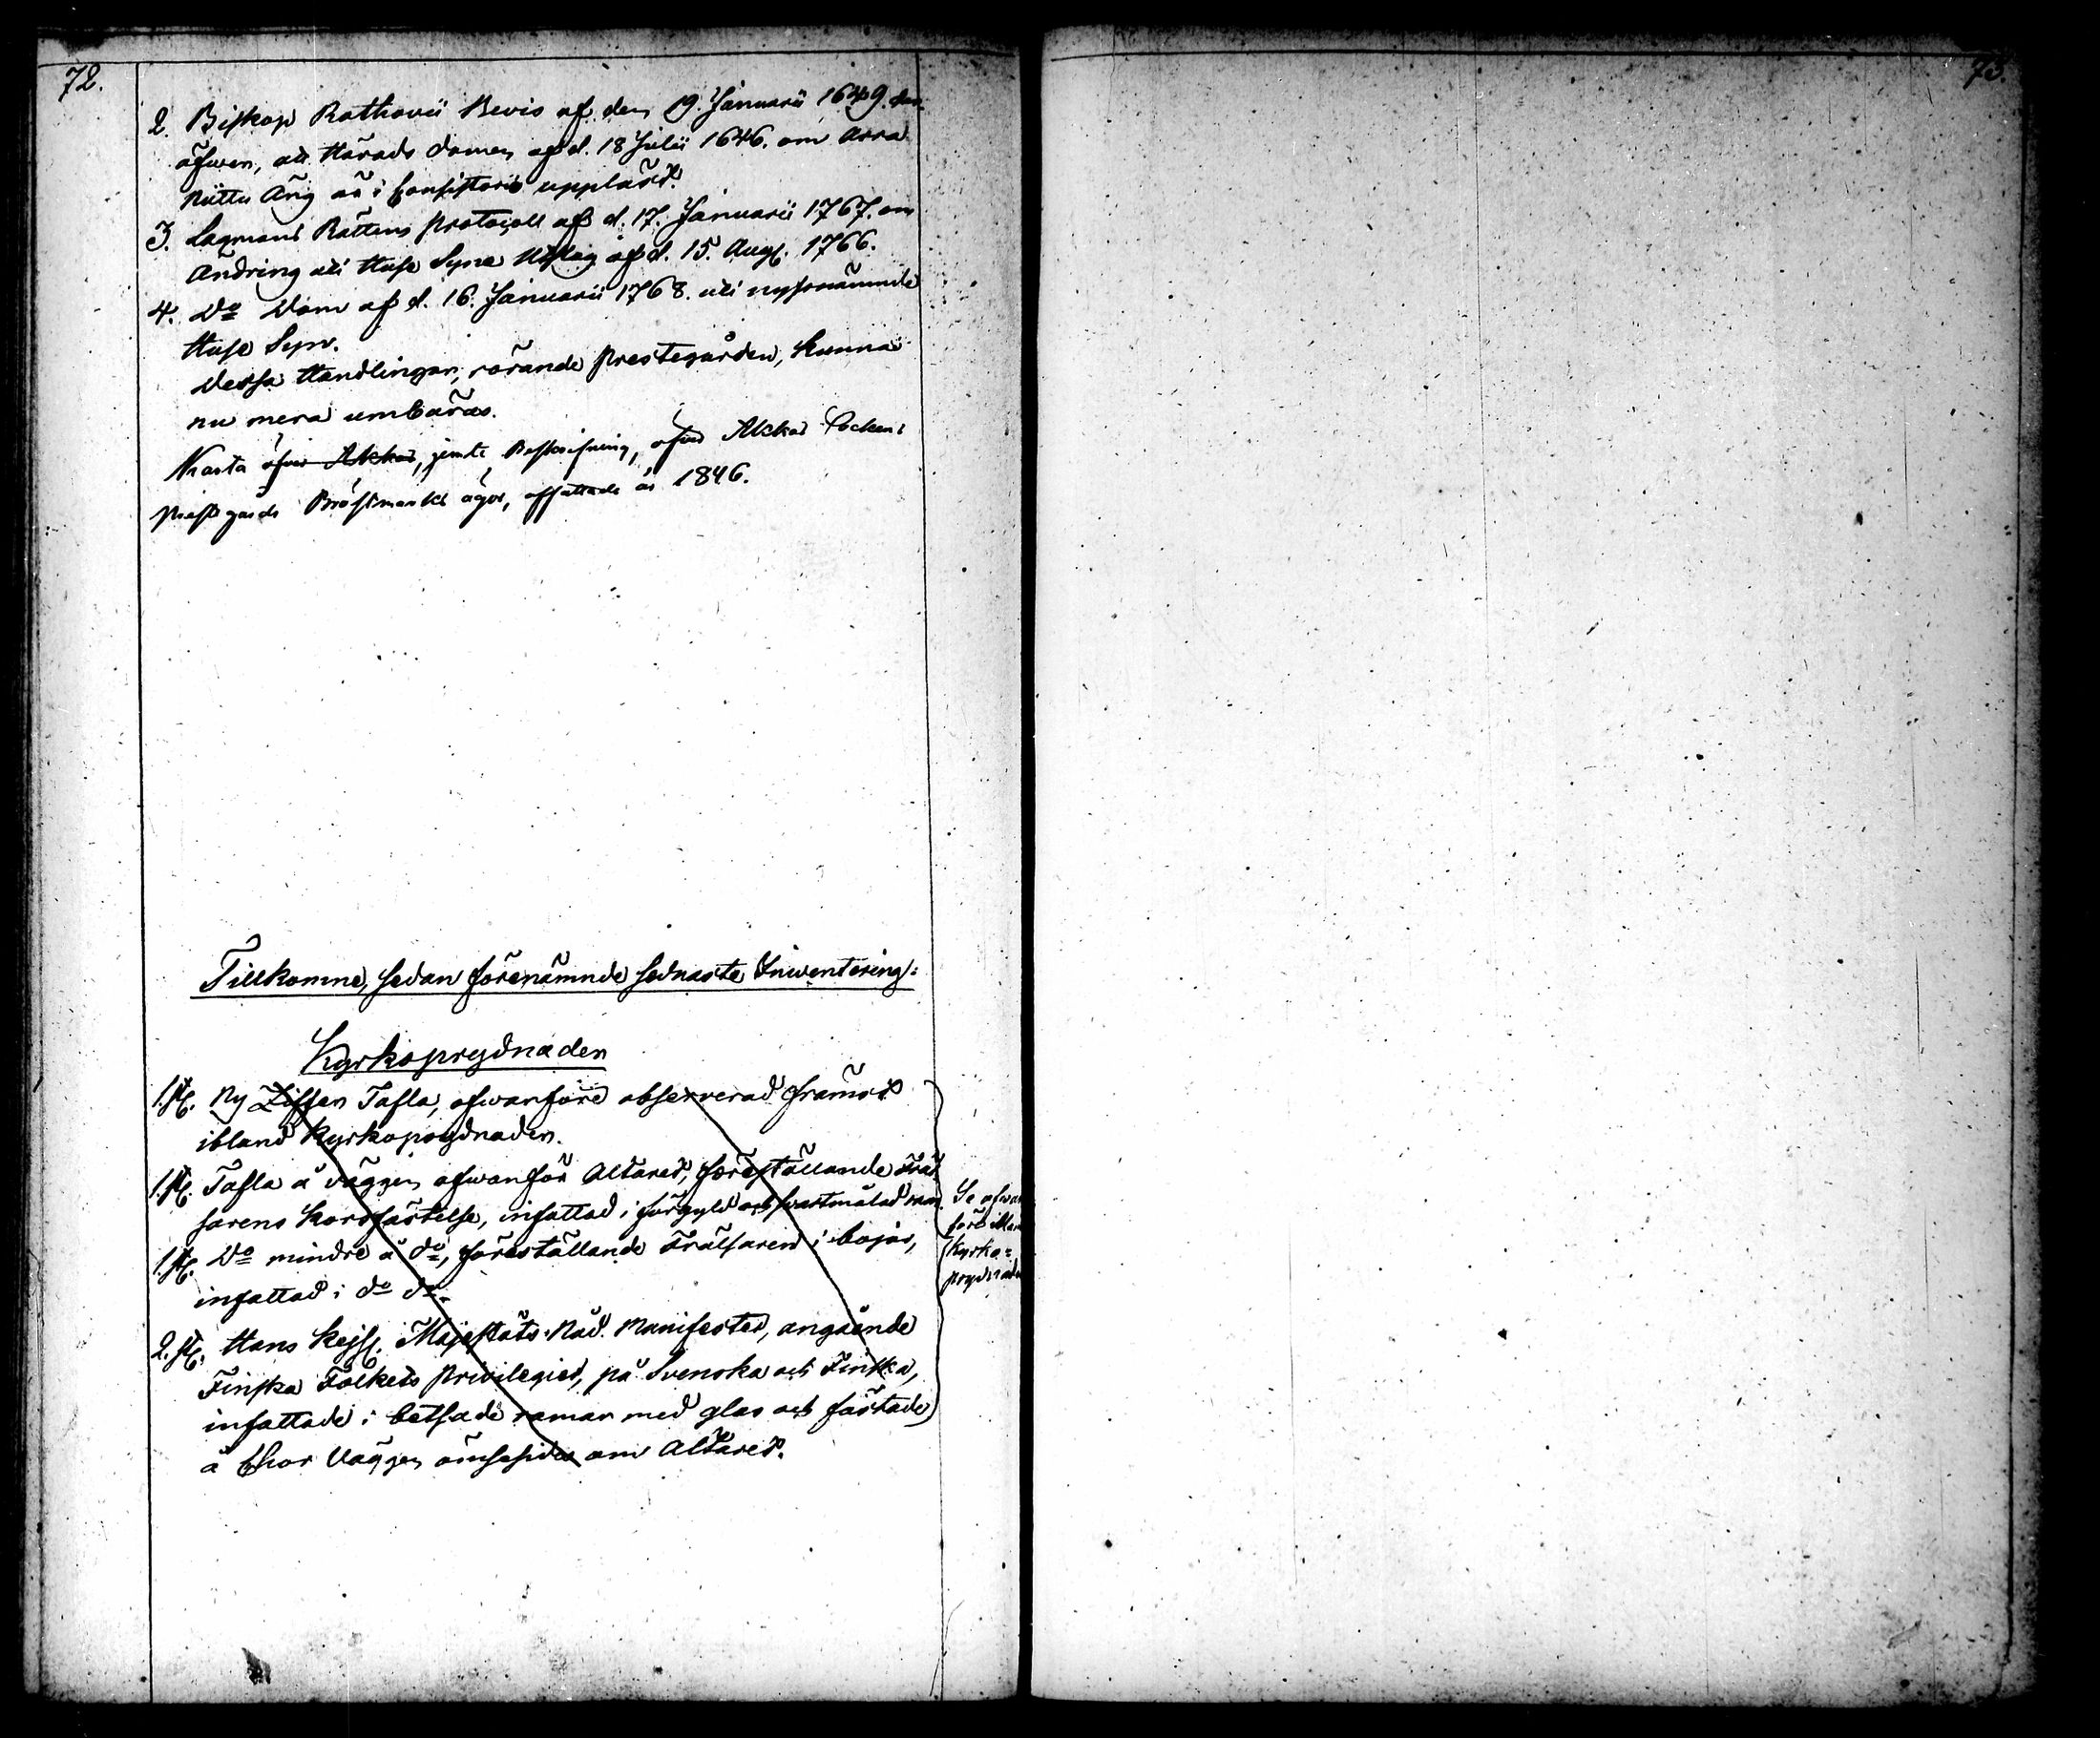 72.
2. Biskop Rothovii Bevis af den 19. Januarii 1649. der=
öfwer, att Härads domen af d. 18 Julii 1646. om Arra
Nittu Äng är i Consistorio uppläst.
3. Lagmans Rättens Protocoll af d. 17. Januarii 1767. om
Ändring uti Huse Syne Utslag af d. 15. Aug. 1766.
4. Do Dom af d. 16. Januarii 1768. uti nyssnämnde
Huse Syn.
Dessa Handlingar, rörande Prestegården, kunna
nu mera umbäras.
Karta öfver Akkas, jemte Beskrifning, öfver Akkas Sockens
Prestgårds ägor, affattade år 1846.
Tillkomne, sedan förenämnde sednaste Inwentering:
Kyrkoprydnader
1. st. Ny Ziffer Tafla, ofwanföre observerad främst
ibland Kyrkoprydnaden.
1. st. Tafla å väggen ofwanför Altaret, föreställande Fräl
sarens Korsfästelse, infattad i förgyld och svartmålad ram.
1. st. Do mindre å do, föreställande Frälsaren i bojor,
infattad i do do.
2. st. Hans Kejs. Majestäts Nåd. Manifester, angående
Finska Folkets Privilegier, på Svenska och Finska,
infattade i betsade ramar med glas och fästade
å Chor Väggen ömsesides om Altaret.
Se ofwan
före
Kyrko=
prydnader
73.